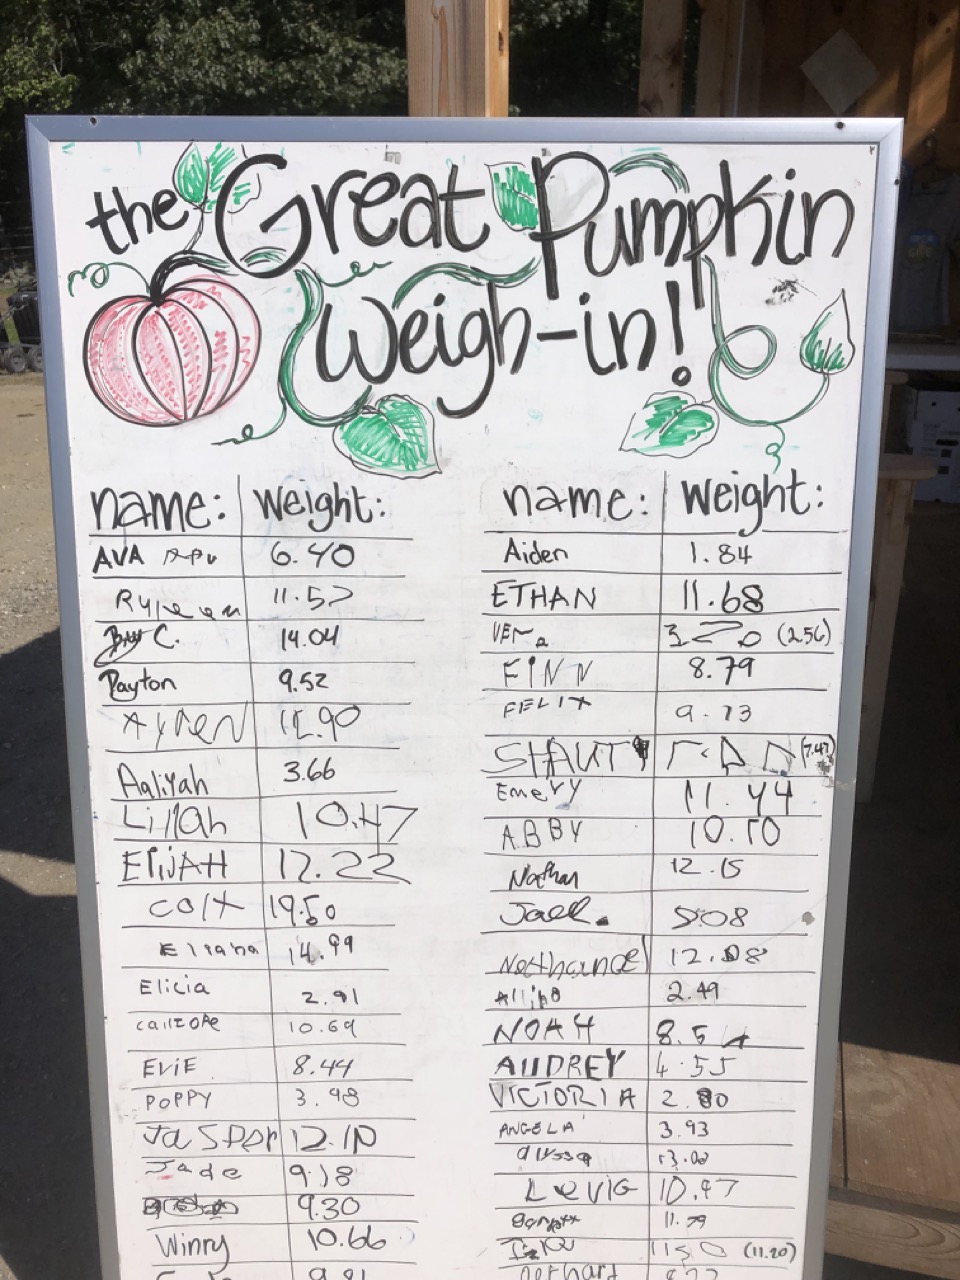 the Great Pumpkin
Weigh-in!
name: Weight:
AVA 6.40
11.57
C. 14.04
Payton 9.52
AYDEN
Aaliyah 3.66
Lillah 10.47
ElIJAH 12.22
colt 19.50
Eliana 14.99
Elicia 2.91
callIOPE 10.69
EViE 8.44
POPPY 3.98
JaSPer 12.10
Jade 9.18
9.30
Winry 10.66
name: Weight:
Aiden 1.84
ETHAN 11.68
(2.56)
FiNN 8.79
FELIX 9.73
(7.47)
Emery 11.44
ABBY 10.10
Nathan 12.15
5.08
12.08
2.49
NOAH 8.5
AUDREY 4.55
VICTORIA 2.80
ANGELA 3.93
alyssa 13.02
10.97
11.79
(11.20)